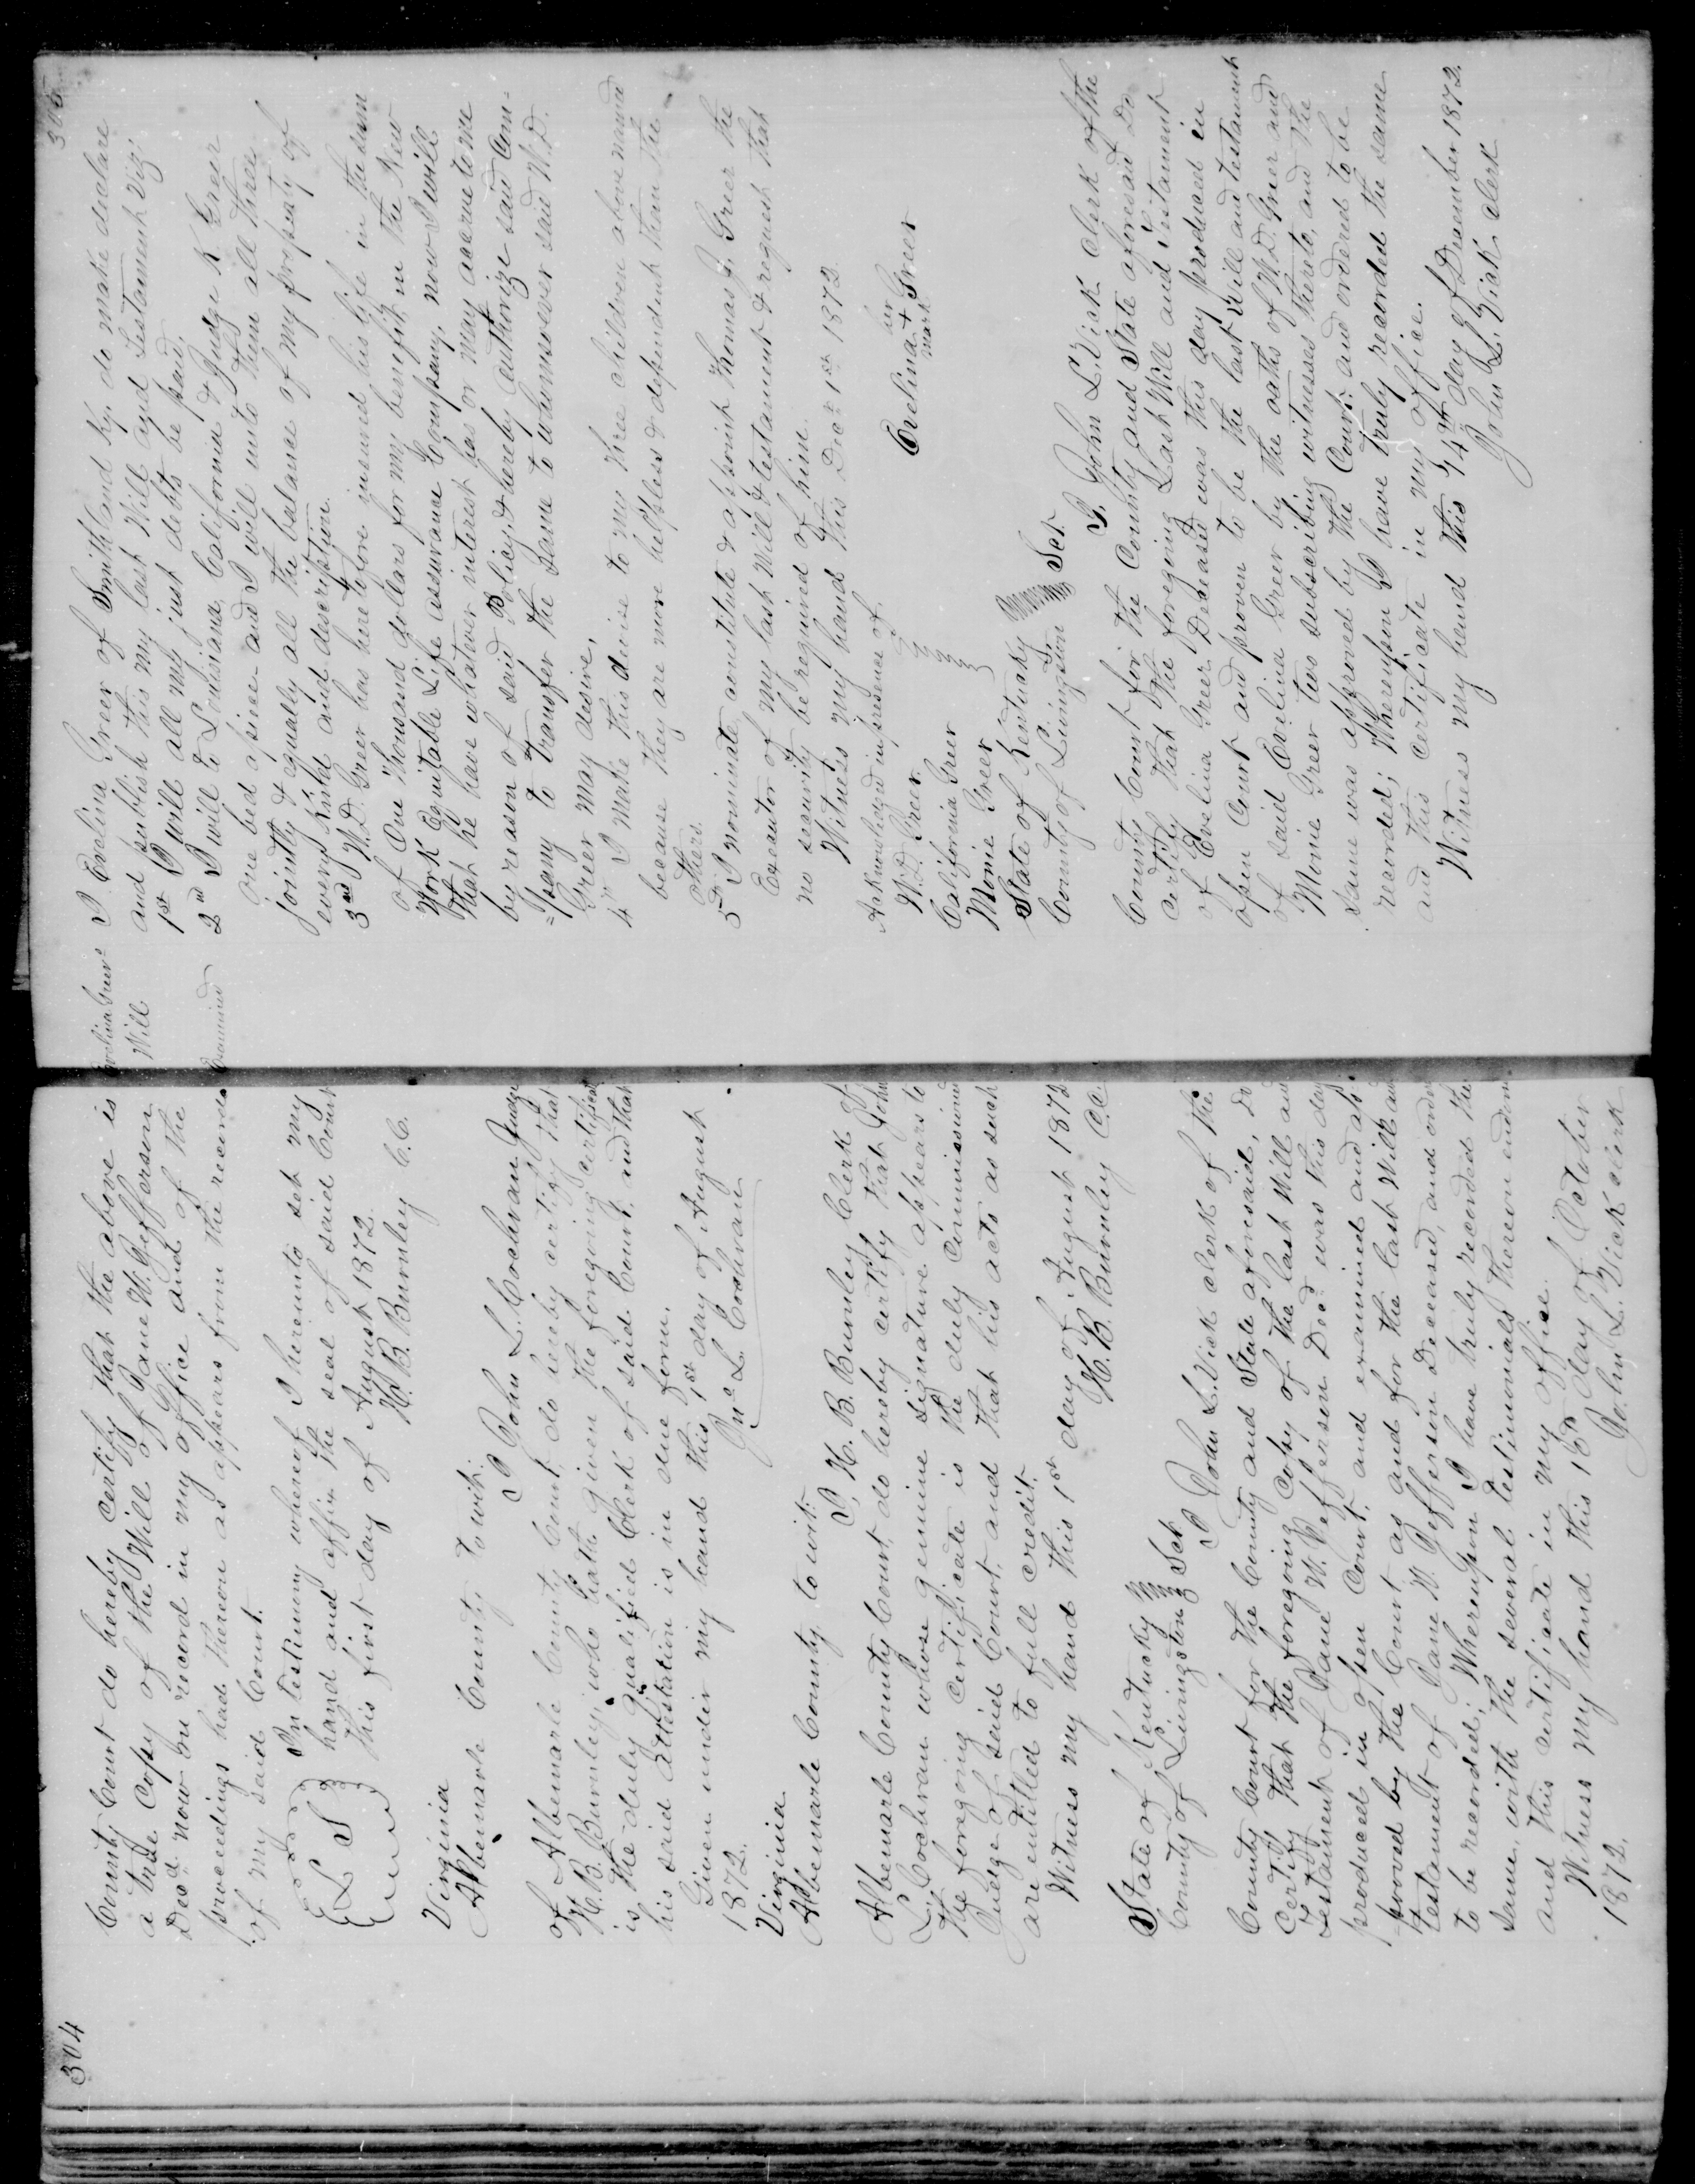 304
County Court do hereby certify that the above is
a true Copy of the Will of Jane W. Jefferson
Decd. now on record in my office and of the
proceedings had thereon as appears from the records
of my said Court.
In testimony whereof I hereunto set my
hand and affix the seal of said Court
this first day of August 1872.
L S
H. B. Burnley C. C.
Virginia
Albemarle County To wit:
I John L. Cochran Judge
of Albemarle County Court, do hereby certify that
H. B. Burnley, who hath given the foregoing certificate
is the duly qualified Clerk of said Court, and that
his said attestation is in due form.
Given under my hand this 1st day of August
1872.
Jno L. Cochran
Virginia
Albemarle County to wit:
I, H. B. Burnley Clerk of
Albemarle County Court, do hereby certify that John
L. Cochran whose genuine signature appears to
the foregoing certificate is the duly Commissioned
Judge of said Court, and that his acts as such
are entitled to full credit.
Witness my hand this 1st day of August 1872
H. B. Burnley C.C.
State of Kentucky
County of Livingston Sct.
I John L. Vick clerk of the
County Court for the County and State aforesaid, do
certify that the foregoing copy of the last Will and
Testament of Jane W. Jefferson Decd was this day
produced in open Court, and examined and ap-
proved by the Court as and for the last Will and
testament of Jane W. Jefferson Deceased, and ordered
to be recorded; Whereupon I have truly recorded the
same, with the several testimonials thereon endorsed
and this certificate in my office.
Witness my hand this 16th day of October
1872.
John L. Vick clerk
306
Evelina Greer's
Will
Examined
I Evelina Greer of Smithland Ky, do make declare
and publish this my last Will and Testament Viz:
1st I will all my just debts be paid.
2nd I will to Louisiana, California & Judge K. Greer
one bed apiece and I will unto them all three
jointly & equally all the balance of my property of
every Kind and description.
3rd W. D. Greer has heretofore insured his life in the sum
of One thousand dollars for my benefit, in the New
York Equitable Life assurance Company, now I will
that he have whatever interest has or may accrue to me
by reason of said Policy, & hereby authorize said Com-
=pany to transfer the same to whomsoever said W. D.
Greer may desire.
4th I make this devise to my three children above named
because they are more helpless & dependent than the
others.
5th I nominate, constitute & appoint Thomas J. Greer the
Executor of my last Will & testament & request that
no security be required of him.
Witness my hand this Decr 1st 1872.
Acknowledged in presence of
her
Evelina + Greer
mark
W. D. Greer
California Greer
Monie Greer
State of Kentucky
County of Livingston Sct.
I, John L. Vick clerk of the
County Court for the County and State aforesaid Do
certify that the foregoing Last Will and Testament
of Evelina Greer Deceased was this day produced in
open Court and proven to be the last Will and testament
of said Evelina Greer by the oaths of W. D. Greer and
Monie Greer two subscribing witnesses thereto, and the
same was approved by the Court, and ordered to be
recorded; Whereupon I have truly recorded the same
and this certificate in my office.
Witness my hand this 4th day of December 1872.
John L. Vick clerk